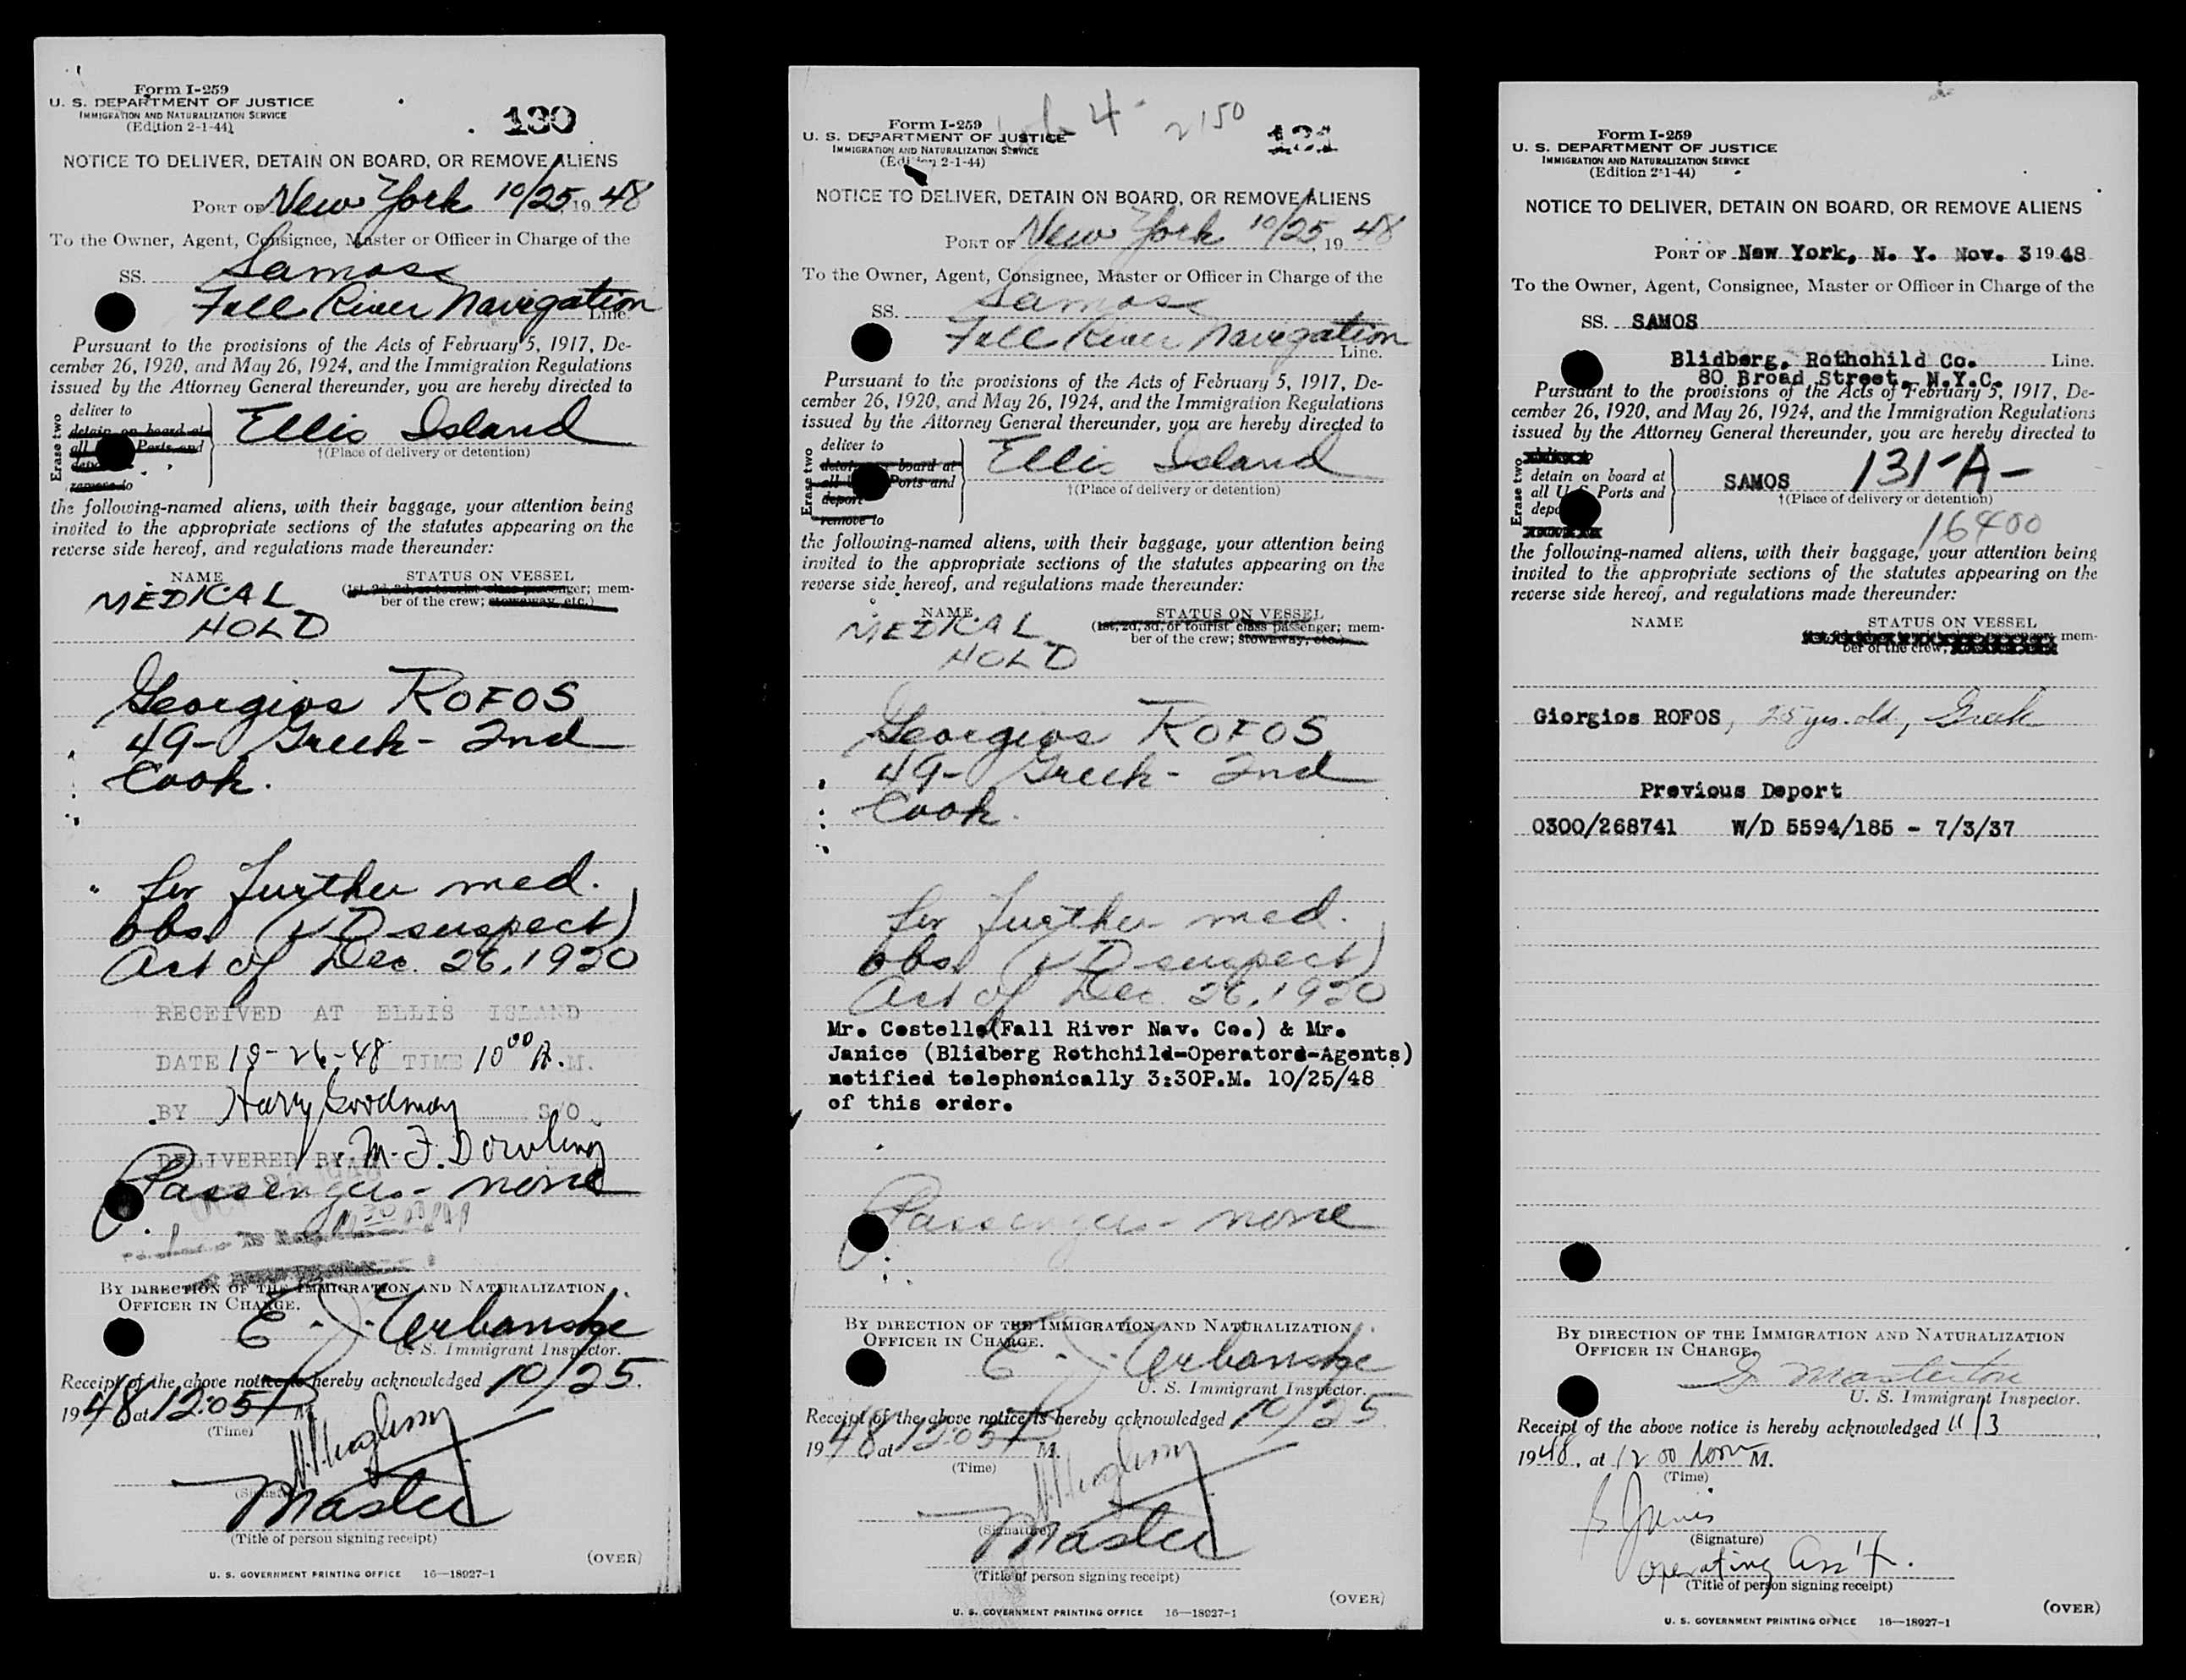 Form I-259
U. S. DEPARTMENT OF JUSTICE
IMMIGRATION AND NATURALIZATION SERVICE
(Edition 2-1-44)
130
NOTICE TO DELIVER, DETAIN ON BOARD, OR REMOVE ALIENS
PORT OF New York 10/25, 19 48
To the Owner, Agent, Consignee, Master or Officer in Charge of the
SS. Samos
Fall River Navigation Line.
Pursuant to the provisions of the Acts of February 5, 1917, De-
cember 26, 1920, and May 26, 1924, and the Immigration Regulations
issued by the Attorney General thereunder, you are hereby directed to
Erase two
deliver to
detain on board at
all Ports and
remove to
Ellis Island
†(Place of delivery or detention)
the following-named aliens, with their baggage, your attention being
invited to the appropriate sections of the statutes appearing on the
reverse side hereof, and regulations made thereunder:
NAME
STATUS ON VESSEL
(1st, 2d, 3d, or tourist class passenger; mem-
ber of the crew; stowaway, etc.)
MEDICAL
HOLD
Georgios ROFOS
49- Greek- 2nd
Cook.
for further med.
obs. (VD suspect)
Act of Dec. 26, 1920
RECEIVED AT ELLIS ISLAND
DATE 10-26-48 TIME 10 00 A.M.
BY Harry Goodman S/O
DELIVERED BY M. F. Dowling
Passengers- none
BY DIRECTION OF THE IMMIGRATION AND NATURALIZATION
OFFICER IN CHARGE.
E. J. Urbanski
U. S. Immigrant Inspector.
Receipt of the above notice is hereby acknowledged 10/25
19 48 at 12.05 P M.
(Time)
(Signature)
Master
(Title of person signing receipt)
(OVER)
U. S. GOVERNMENT PRINTING OFFICE 16—18927-1
4- 2150
Form I-259
U. S. DEPARTMENT OF JUSTICE
IMMIGRATION AND NATURALIZATION SERVICE
(Edition 2-1-44)
131
NOTICE TO DELIVER, DETAIN ON BOARD, OR REMOVE ALIENS
PORT OF New York 10/25, 19 48
To the Owner, Agent, Consignee, Master or Officer in Charge of the
SS. Samos
Fall River Navigation Line.
Pursuant to the provisions of the Acts of February 5, 1917, De-
cember 26, 1920, and May 26, 1924, and the Immigration Regulations
issued by the Attorney General thereunder, you are hereby directed to
Erase two
deliver to
detain on board at
all Ports and
deport
remove to
Ellis Island
†(Place of delivery or detention)
the following-named aliens, with their baggage, your attention being
invited to the appropriate sections of the statutes appearing on the
reverse side hereof, and regulations made thereunder:
NAME
STATUS ON VESSEL
(1st, 2d, 3d, or tourist class passenger; mem-
ber of the crew; stowaway, etc.)
MEDICAL
HOLD
Georgios ROFOS
49- Greek- 2nd
Cook.
for further med.
obs. (VD suspect)
Act of Dec. 26, 1920
Mr. Costello(Fall River Nav. Co.) & Mr.
Janice (Blidberg Rothchild-Operatord-Agents)
notified telephonically 3:30P.M. 10/25/48
of this order.
Passengers- none
BY DIRECTION OF THE IMMIGRATION AND NATURALIZATION
OFFICER IN CHARGE.
E. J. Urbanski
U. S. Immigrant Inspector.
Receipt of the above notice is hereby acknowledged 10/25
19 48 at 12.05 P M.
(Time)
(Signature)
Master
(Title of person signing receipt)
(OVER)
U. S. GOVERNMENT PRINTING OFFICE 16—18927-1
Form I-259
U. S. DEPARTMENT OF JUSTICE
IMMIGRATION AND NATURALIZATION SERVICE
(Edition 2-1-44)
NOTICE TO DELIVER, DETAIN ON BOARD, OR REMOVE ALIENS
PORT OF New York, N. Y. Nov. 3 19 48
To the Owner, Agent, Consignee, Master or Officer in Charge of the
SS. SAMOS
Blidberg, Rothchild Co. Line.
80 Broad Street, N.Y.C.
Pursuant to the provisions of the Acts of February 5, 1917, De-
cember 26, 1920, and May 26, 1924, and the Immigration Regulations
issued by the Attorney General thereunder, you are hereby directed to
Erase two
detain on board at
all U. S. Ports and
SAMOS 131-A-
†(Place of delivery or detention)
16400
the following-named aliens, with their baggage, your attention being
invited to the appropriate sections of the statutes appearing on the
reverse side hereof, and regulations made thereunder:
NAME
STATUS ON VESSEL
mem-
ber of the crew;
Giorgios ROFOS, 25 yrs. old, Greek
Previous Deport
0300/268741 W/D 5594/185 - 7/3/37
BY DIRECTION OF THE IMMIGRATION AND NATURALIZATION
OFFICER IN CHARGE.
G Masterton
U. S. Immigrant Inspector.
Receipt of the above notice is hereby acknowledged 11/3,
19 48, at 12 00 noon M.
(Time)
(Signature)
Operating Ass't.
(Title of person signing receipt)
(OVER)
U. S. GOVERNMENT PRINTING OFFICE 16—18927-1